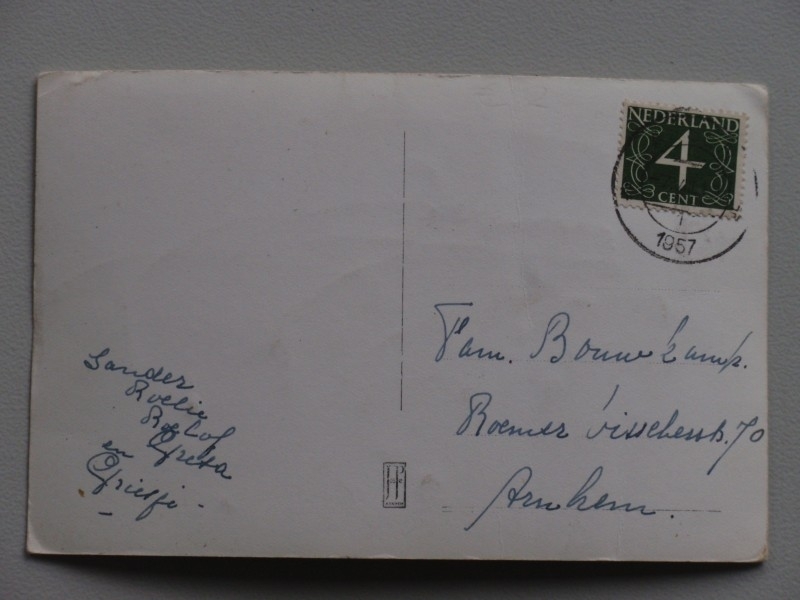 NEDERLAND
4
CENT
1
1957
Fam. Bouwkamp.
Roemer Visscherstr. 70
Arnhem.
Sander
Roelie
Roelof
Greta
en
Grietje -
JP